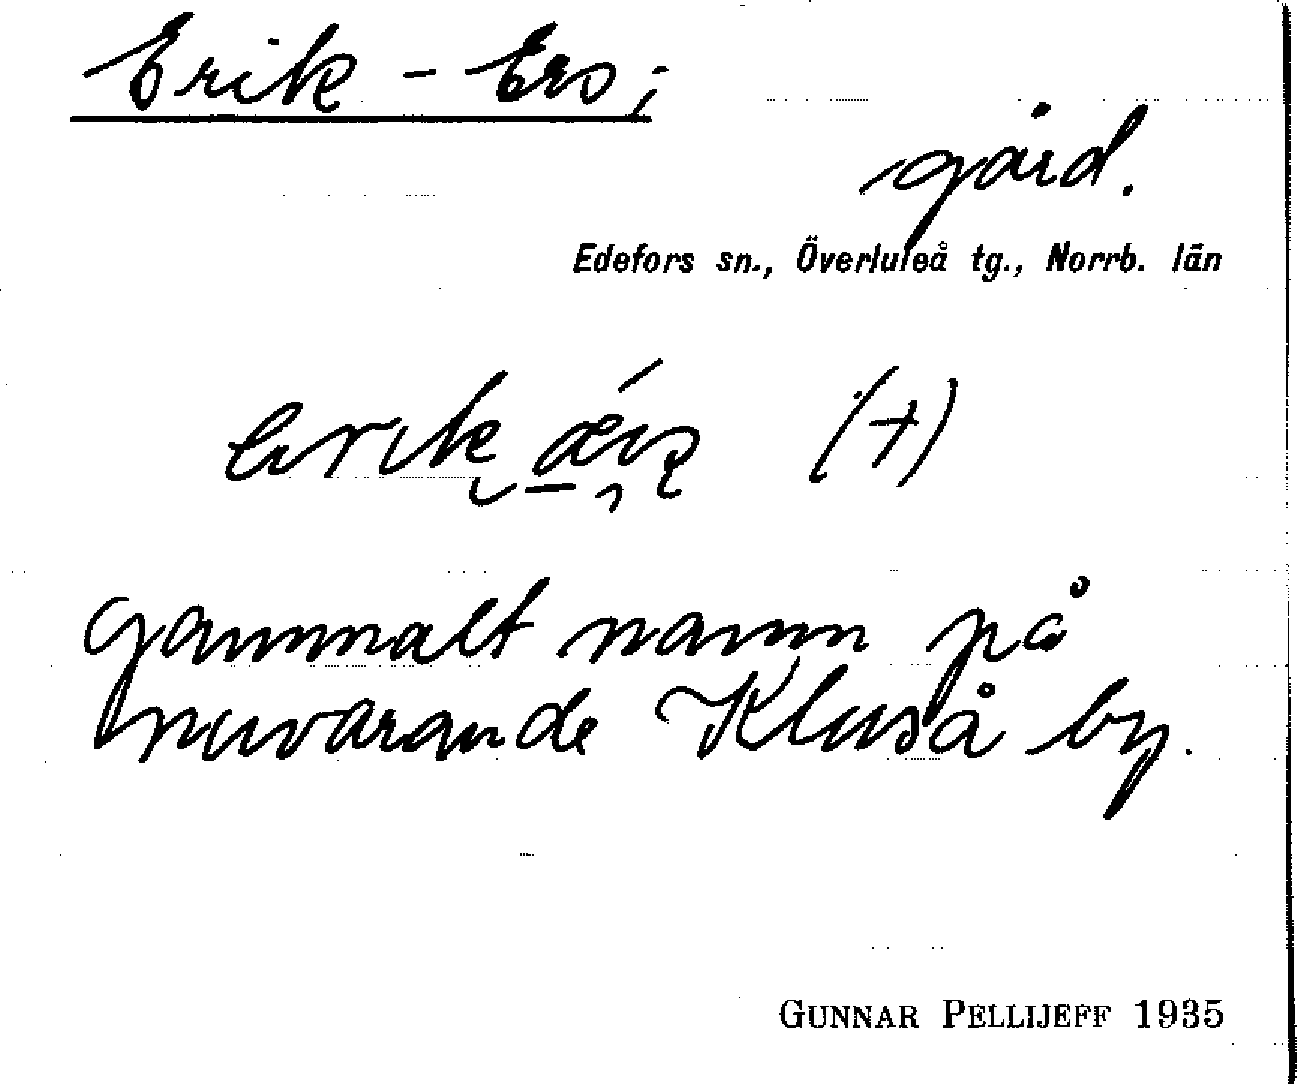 Erik-Ers;
gård.
Edefors sn., Överluleå tg., Norrb. län
(+)
Gammalt namn på
nuvarande Kluså by.
GUNNAR PELLIJEFF 1935